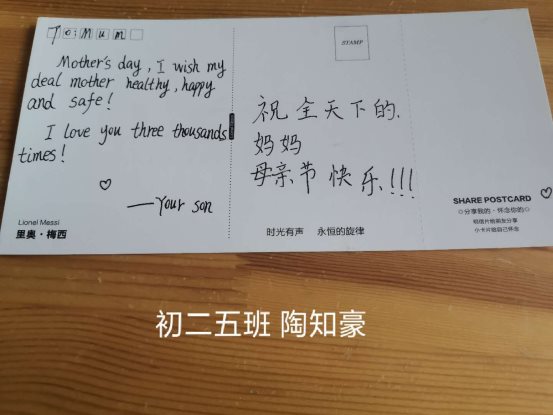 To: Mum
Mother's day, I wish my
deal mother healthy, happy
and safe!
I love you three thousands
times!
—Your son
Lionel Messi
里奥·梅西
STAMP
祝全天下的.
妈妈
母亲节快乐!!!
时光有声 永恒的旋律
SHARE POSTCARD
分享我的·怀念你的
小卡片给自己怀念
初二五班 陶知豪